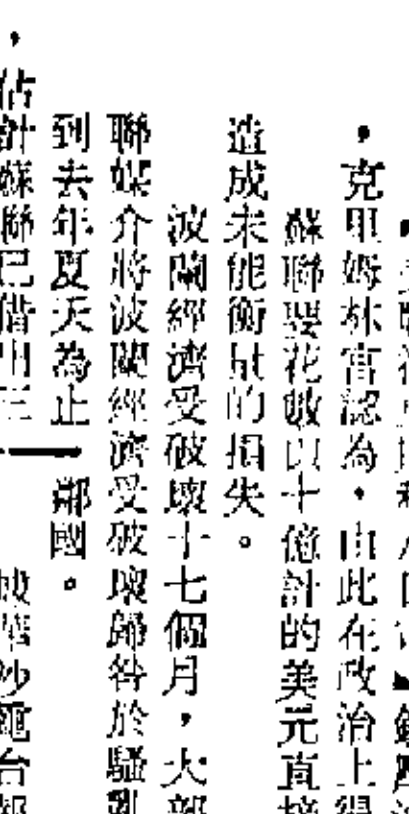 ，克里姆林宮認為，由此在政治上得
蘇聯要花數以十億計的美元直接
造成未能衡量的損失。
波蘭經濟受破壞十七個月，大部
聯媒介將波蘭經濟受破壞歸咎於騷亂
鄰國。
華沙電台
到去年夏天為止
，估計蘇聯已借出三